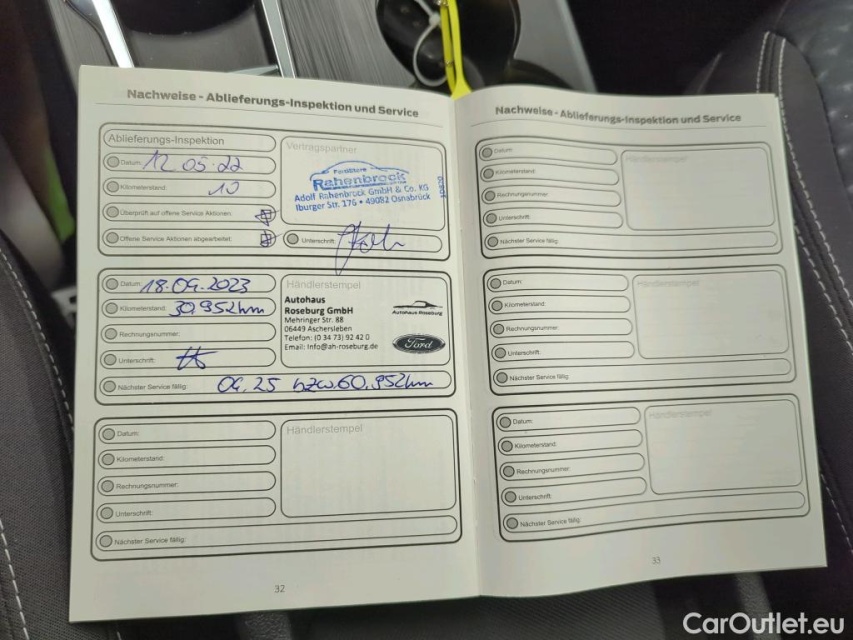 Nachweise - Ablieferungs-Inspektion und Service
Ablieferungs-Inspektion
Datum: 12 05.22
Kilometerstand: 10
Überprüft auf offene Service Aktionen:
Offene Service Aktionen abgearbeitet:
Vertragspartner
FordStore
Rahenbrock
Adolf Rahenbrock GmbH & Co. KG
Iburger Str. 176 • 49082 Osnabrück
Unterschrift:
Datum: 18.09.2023
Kilometerstand: 30.952km
Rechnungsnummer:
Unterschrift:
Nächster Service fällig: 09.25 bzw 60.952km
Händlerstempel
Autohaus
Roseburg GmbH
Mehringer Str. 88
06449 Aschersleben
Telefon: (0 34 73) 92 42 0
Email: Info@ah-roseburg.de
Autohaus Roseburg
Ford
Datum:
Kilometerstand:
Rechnungsnummer:
Unterschrift:
Nächster Service fällig:
Händlerstempel
32
Nachweise - Ablieferungs-Inspektion und Service
Datum:
Kilometerstand:
Rechnungsnummer:
Unterschrift:
Nächster Service fällig:
Händlerstempel
Datum:
Kilometerstand:
Rechnungsnummer:
Unterschrift:
Nächster Service fällig:
Händlerstempel
Datum:
Kilometerstand:
Rechnungsnummer:
Unterschrift:
Nächster Service fällig:
Händlerstempel
33
CarOutlet.eu